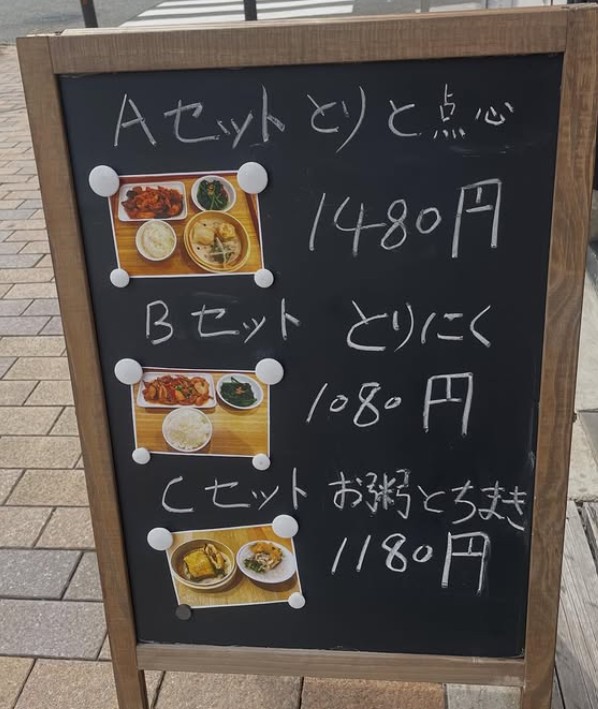 Aセット とりと点心
1480円
Bセット とりにく
1080円
Cセット お粥とちまき
1180円